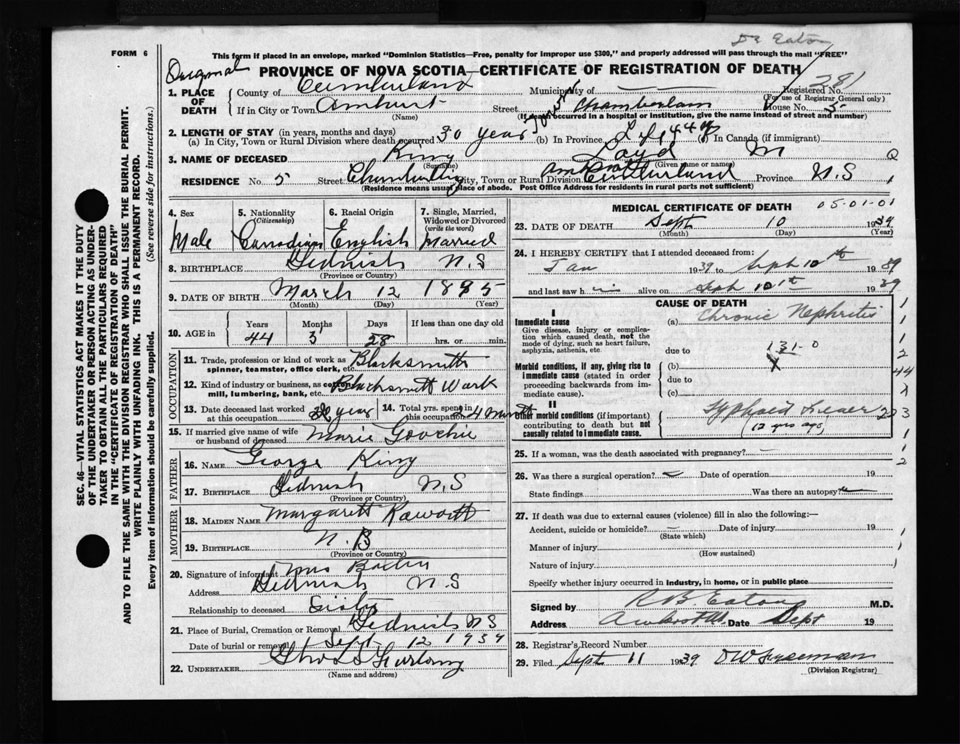 FORM 6
Dr Eaton
This form if placed in an envelope, marked "Dominion Statistics—Free, penalty for improper use $300," and properly addressed will pass through the mail "FREE"
Original
PROVINCE OF NOVA SCOTIA—CERTIFICATE OF REGISTRATION OF DEATH
281
1. PLACE OF DEATH
County of Cumberland Municipality of — Registered No.
(For use of Registrar General only)
If in City or Town Amherst Street Chamberlain House No. 5
(Name) (If death occurred in a hospital or institution, give the name instead of street and number)
2. LENGTH OF STAY (in years, months and days)
(a) In City, Town or Rural Division where death occurred 30 years (b) In Province Life 44 (c) In Canada (if immigrant)
3. NAME OF DECEASED King Loyd M
(Surname) (Given name or names)
RESIDENCE No. 5 Street City, Town or Rural Division Amherst Cumberland Province N.S
(Residence means usual place of abode. Post Office Address for residents in rural parts not sufficient)
4. Sex Male
5. Nationality (Citizenship) Canadian
6. Racial Origin English
7. Single, Married, Widowed or Divorced (write the word) Married
8. BIRTHPLACE Tidnish N.S
(Province or Country)
9. DATE OF BIRTH March 12 1895
(Month) (Day) (Year)
10. AGE in Years Months Days If less than one day old
44 3 28 hrs. or min.
OCCUPATION
11. Trade, profession or kind of work as spinner, teamster, office clerk, etc. Blacksmith
12. Kind of industry or business, as cotton mill, lumbering, bank, etc. Blacksmith Work
13. Date deceased last worked at this occupation year
14. Total yrs. spent in this occupation 24
15. If married give name of wife or husband of deceased Marie Goochie
FATHER
16. NAME George King
17. BIRTHPLACE Tidnish N.S
(Province or Country)
MOTHER
18. MAIDEN NAME Margarett Raworth
19. BIRTHPLACE N.B
(Province or Country)
20. Signature of informant Mrs
Address Tidnish N.S
Relationship to deceased Sister
21. Place of Burial, Cremation or Removal Tidnish NS
Date of burial or removal Sept 12 1939
22. UNDERTAKER Furlong
(Name and address)
MEDICAL CERTIFICATE OF DEATH
05-01-01
23. DATE OF DEATH Sept 10 1939
(Month) (Day) (Year)
24. I HEREBY CERTIFY that I attended deceased from:
Jan 1939 to Sept 10th 1939
and last saw him alive on Sept 10th 1939
CAUSE OF DEATH
I
Immediate cause
Give disease, injury or complication which caused death, not the mode of dying, such as heart failure, asphyxia, asthenia, etc.
(a) Chronic Nephritis
due to 131-0
Morbid conditions, if any, giving rise to immediate cause (stated in order proceeding backwards from immediate cause).
(b)
due to
(c)
II
Other morbid conditions (if important) contributing to death but not causally related to immediate cause.
Typhoid Fever
(12 yrs ago)
25. If a woman, was the death associated with pregnancy? —
26. Was there a surgical operation? — Date of operation 19
State findings Was there an autopsy
27. If death was due to external causes (violence) fill in also the following:—
Accident, suicide or homicide? — Date of injury 19
(State which)
Manner of injury
(How sustained)
Nature of injury
Specify whether injury occurred in industry, in home, or in public place
Signed by R B Eaton M.D.
Address Amherst Date Sept 19
28. Registrar's Record Number
29. Filed Sept 11 1939
(Division Registrar)
SEC. 46—VITAL STATISTICS ACT MAKES IT THE DUTY
OF THE UNDERTAKER OR PERSON ACTING AS UNDER-
TAKER TO OBTAIN ALL THE PARTICULARS REQUIRED
IN THE "CERTIFICATE OF REGISTRATION OF DEATH"
AND TO FILE THE SAME WITH THE DIVISION REGISTRAR WHO SHALL ISSUE THE BURIAL PERMIT.
WRITE PLAINLY WITH UNFADING INK. THIS IS A PERMANENT RECORD.
Every item of information should be carefully supplied. (See reverse side for instructions.)